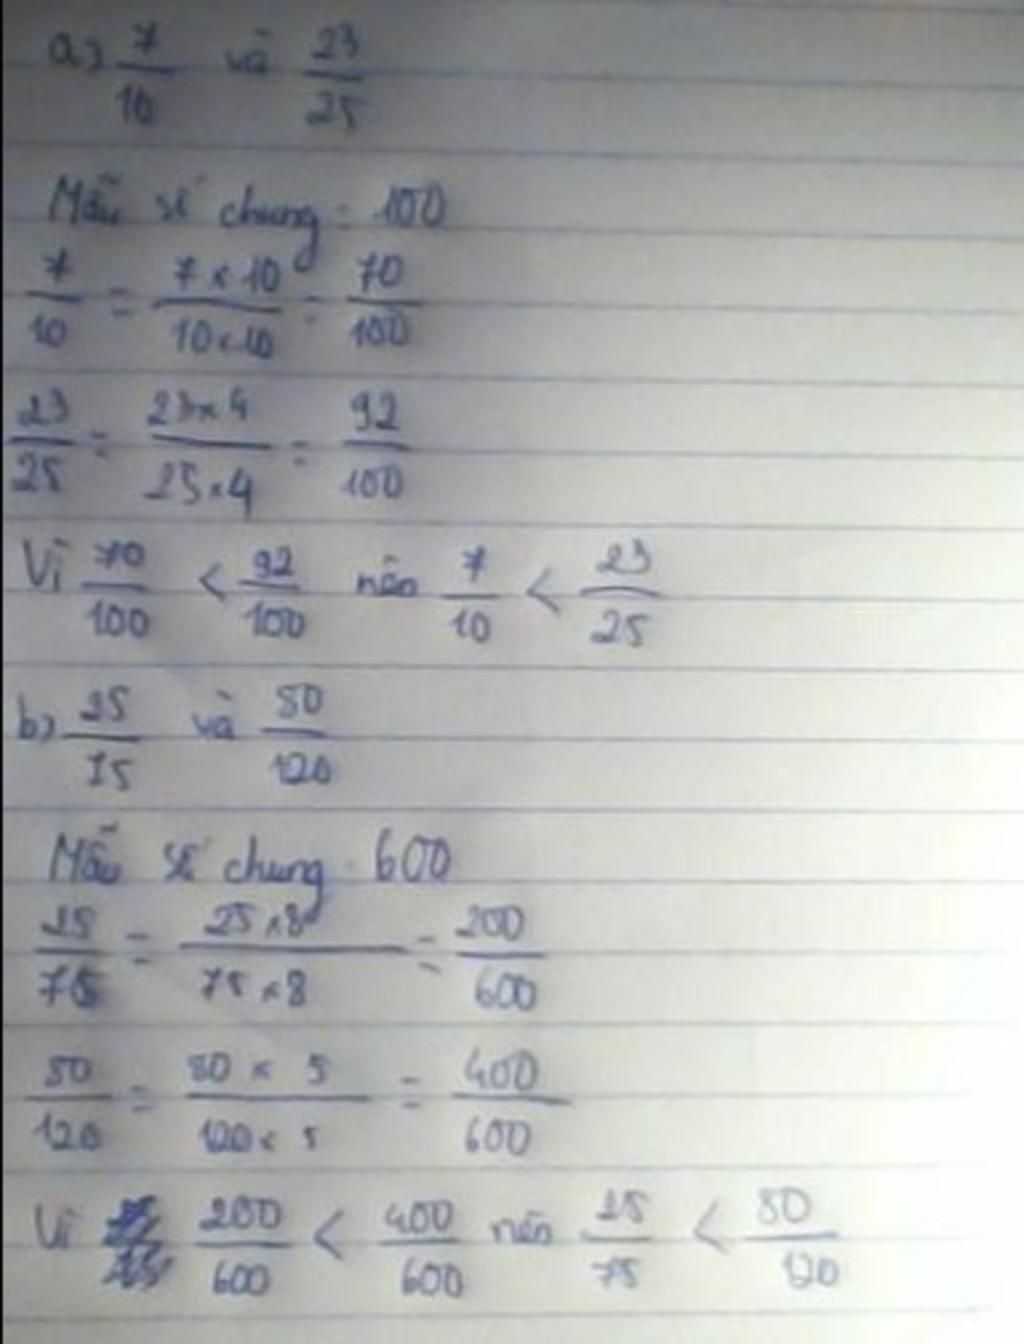 a) 7/10 và 23/25
Mẫu số chung: 100
7/10 = 7 × 10/10 × 10 = 70/100
23/25 = 23 × 4/25 × 4 = 92/100
Vì 70/100 < 92/100 nên 7/10 < 23/25
b) 25/75 và 80/120
Mẫu số chung: 600
25/75 = 25 × 8/75 × 8 = 200/600
80/120 = 80 × 5/120 × 5 = 400/600
Vì 200/600 < 400/600 nên 25/75 < 80/120